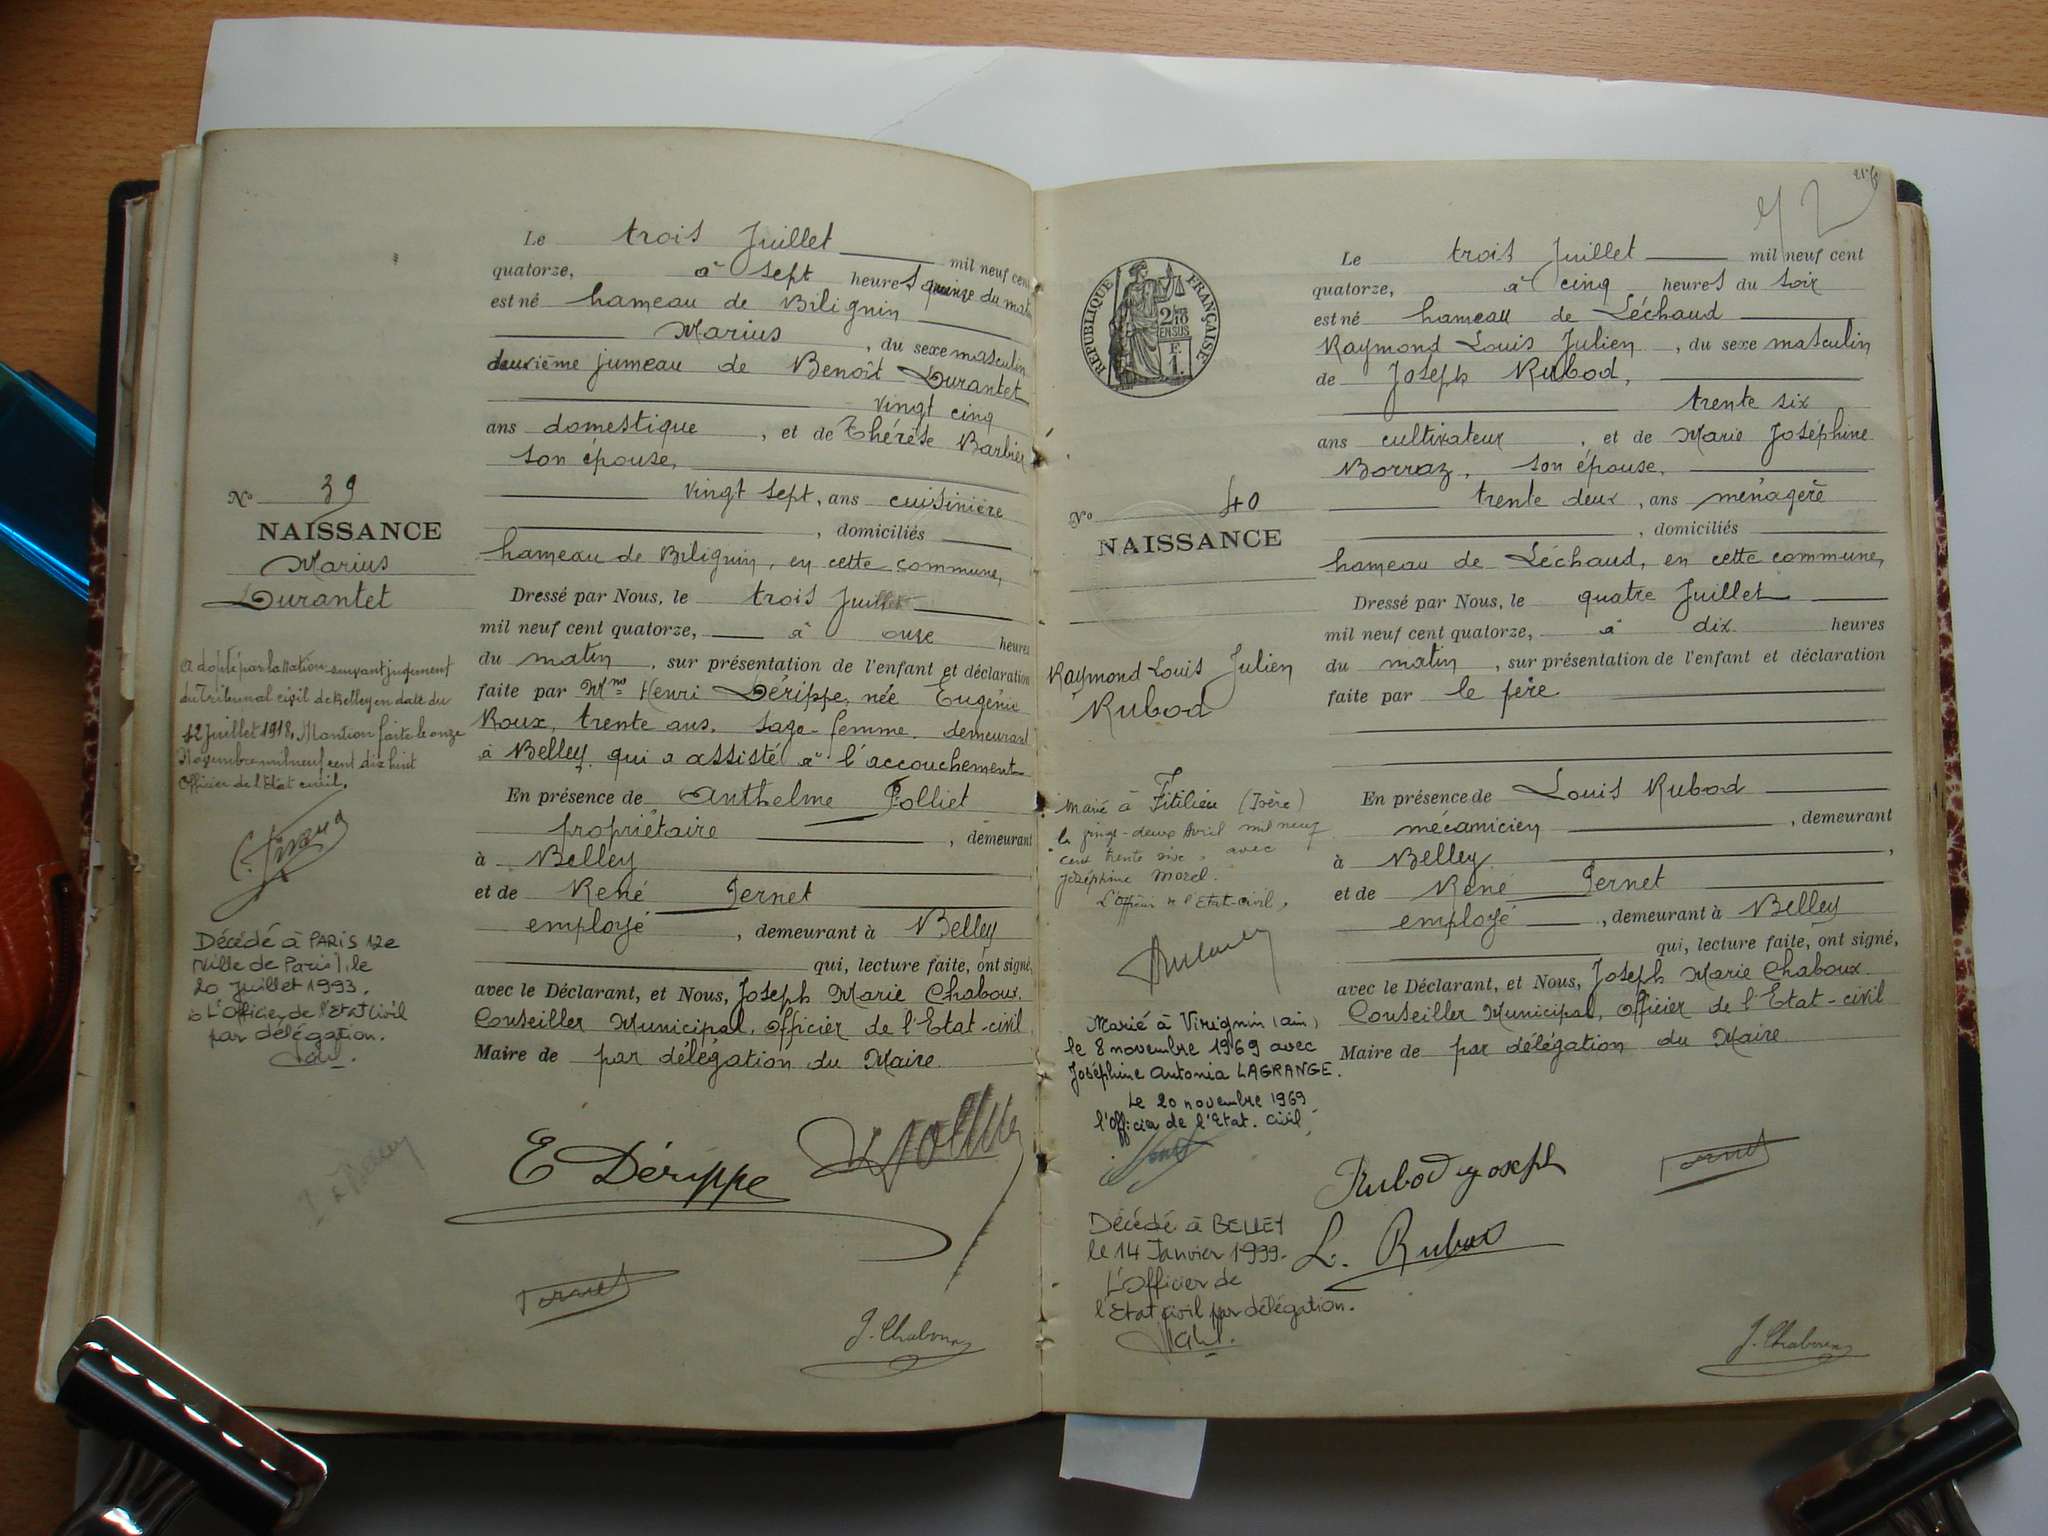 Le trois Juillet mil neuf cent
quatorze, à sept heures quinze du mat
est né hameau de Biliguin
Marius, du sexe masculin
deuxième jumeau de Benoît Durantet
vingt cinq
ans domestique, et de Thérèse Barbier
son épouse,
vingt sept, ans cuisinière
, domiciliés
hameau de Biliguin, en cette commune,
Dressé par Nous, le trois Juillet
mil neuf cent quatorze, à onze heures
du matin, sur présentation de l'enfant et déclaration
faite par Mme Henri Dérippe, née Eugénie
Roux, trente ans, sage-femme, demeurant
à Belley, qui a assisté à l'accouchement
En présence de Anthelme Folliet
propriétaire, demeurant
à Belley
et de René Pernet
employé, demeurant à Belley
qui, lecture faite, ont signé,
avec le Déclarant, et Nous, Joseph Marie Chaboux.
Conseiller Municipal, Officier de l'Etat-civil
Maire de par délégation du Maire.
E Dérippe
J. Chaboux
No 39
NAISSANCE
Marius
Durantet
Adopté par la Nation suivant jugement
du Tribunal civil de Belley en date du
12 Juillet 1918, Mention faite le onze
Novembre mil neuf cent dix huit
Officier de l'Etat civil.
Décédé à PARIS 12e
(Ville de Paris), le
20 Juillet 1993.
L'Officier de l'Etat Civil
par délégation.
RÉPUBLIQUE FRANÇAISE
2/10
EN SUS
F.
1.
Le trois Juillet mil neuf cent
quatorze, à cinq heures du soir
est né hameau de Léchaud
Raymond Louis Julien, du sexe masculin
de Joseph Rubod,
trente six
ans cultivateur, et de Marie Joséphine
Borraz, son épouse,
trente deux, ans ménagère
, domiciliés
hameau de Léchaud, en cette commune,
Dressé par Nous, le quatre Juillet
mil neuf cent quatorze, à dix heures
du matin, sur présentation de l'enfant et déclaration
faite par le père
En présence de Louis Rubod
mécanicien, demeurant
à Belley,
et de René Pernet
employé, demeurant à Belley
qui, lecture faite, ont signé,
avec le Déclarant, et Nous, Joseph Marie Chaboux.
Conseiller Municipal, Officier de l'Etat-civil
Maire de par délégation du Maire.
Rubod Joseph
L. Rubod
J. Chaboux
No 40
NAISSANCE
Raymond Louis Julien
Rubod
Marié à Fitilieu (Isère)
le vingt-deux Avril mil neuf
cent trente six, avec
Joséphine Morel.
L'Officier de l'Etat-civil,
Marié à Virignin (ain)
le 8 novembre 1969 avec
Joséphine Antonia LAGRANGE.
Le 20 novembre 1969
l'Officier de l'Etat. civil,
Décédé à BELLEY
le 14 Janvier 1999.
L'Officier de
l'Etat civil par délégation.